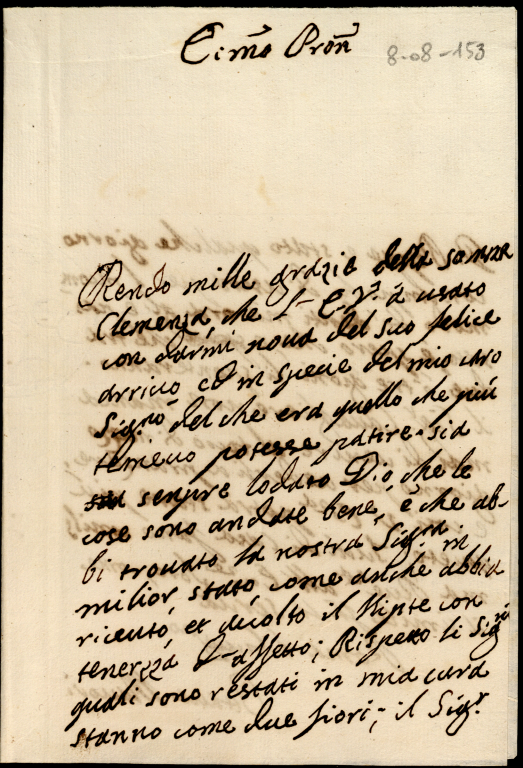 Ecmo Pron
8-08-153
Rendo mille grazie della somma
Clemenza, che l'E.V. à usato
con darmi nova del suo felice
arrivo, ed in specie del mio caro
Sigro del che era quello che più
temevo potesse patire. sia
sempre lodato Dio, che le
cose sono andate bene, è che ab-
bi trovato la nostra Sigra in
milior stato, come anche abbia
riceuto, et acolto il Nipte con
tenerezza è affetto; Rispetto li Sigri
quali sono restati in mia cura
stanno come due fiori; il Sigr